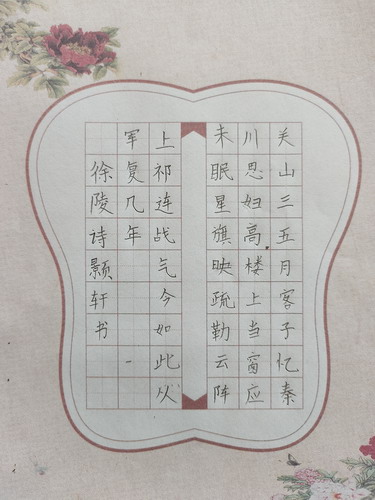 关山三五月客子忆秦
川思妇高楼上当窗应
未眠星旗映疏勒云阵
上祁连战气今如此从
军复几年
徐陵诗颢轩书